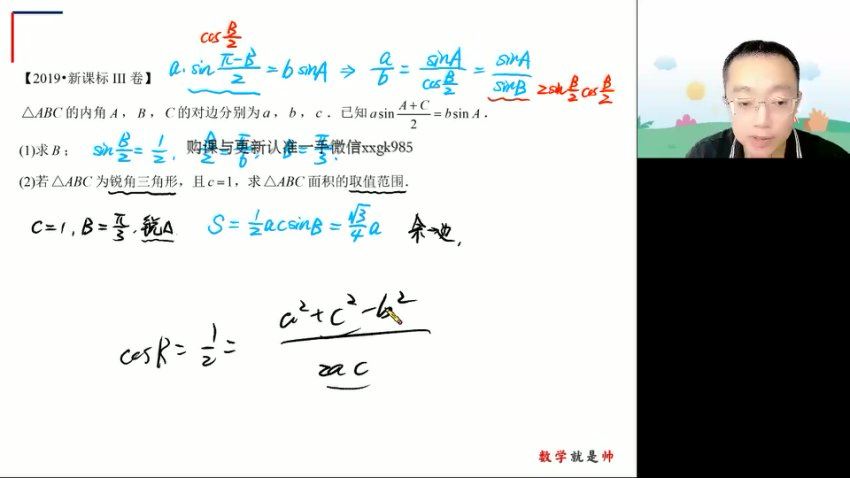 cos B/2
【2019•新课标 III 卷】 a·sin (π-B)/2 = b sinA ⇒ a/b = sinA/cos B/2 = sinA/sinB 2sin B/2 cos B/2
△ABC 的内角 A，B，C 的对边分别为 a，b，c．已知 a sin (A+C)/2 = b sin A．
(1)求 B； sin B/2 = 1/2, π/6, B = π/3.
购课与更新认准一手微信xxgk985
(2)若 △ABC 为锐角三角形，且 c=1，求 △ABC 面积的取值范围．
C=1, B=π/3, 锐△ S = 1/2 acsinB = √3/4 a 余→边,
cosB = 1/2 = (a²+c²-b²)/(2ac)
数学就是帅